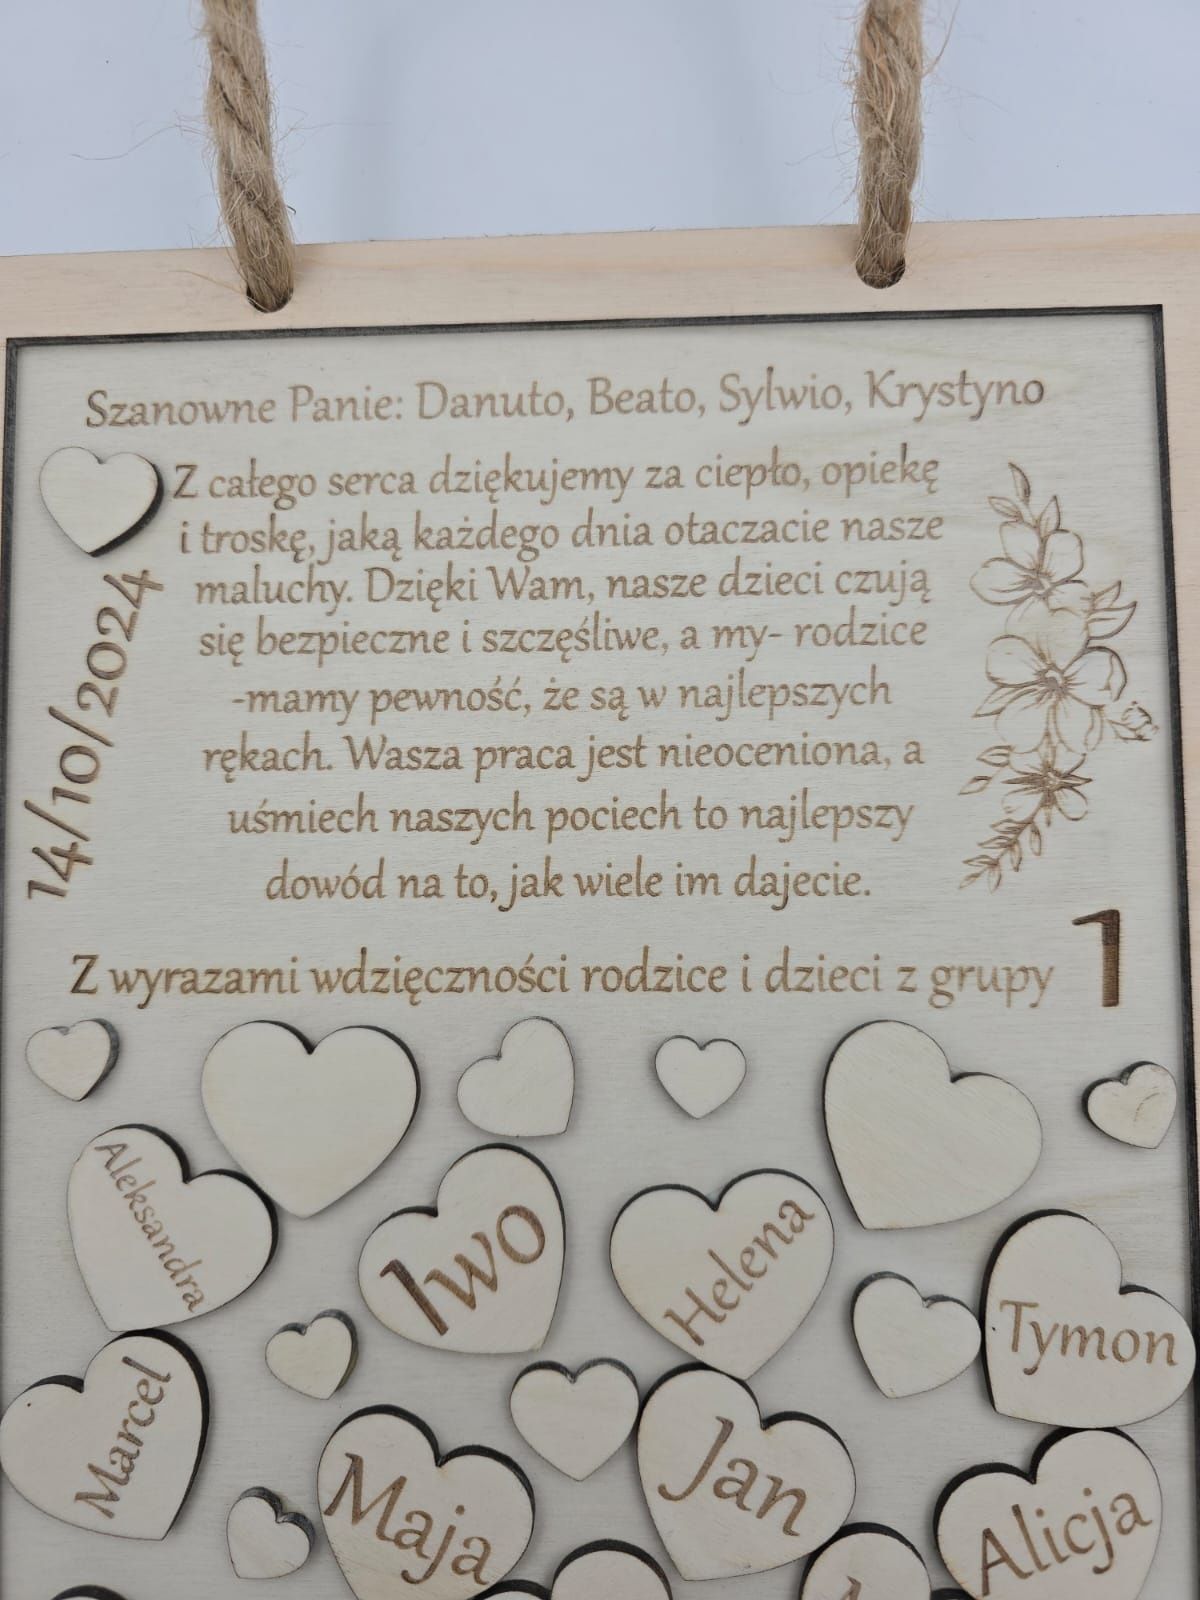 Szanowne Panie: Danuto, Beato, Sylwio, Krystyno
Z całego serca dziękujemy za ciepło, opiekę
i troskę, jaką każdego dnia otaczacie nasze
maluchy. Dzięki Wam, nasze dzieci czują
się bezpieczne i szczęśliwe, a my- rodzice
-mamy pewność, że są w najlepszych
rękach. Wasza praca jest nieoceniona, a
uśmiech naszych pociech to najlepszy
dowód na to, jak wiele im dajecie.
14/10/2024
Z wyrazami wdzięczności rodzice i dzieci z grupy 1
Aleksandra
Iwo
Helena
Tymon
Marcel
Maja
Jan
Alicja